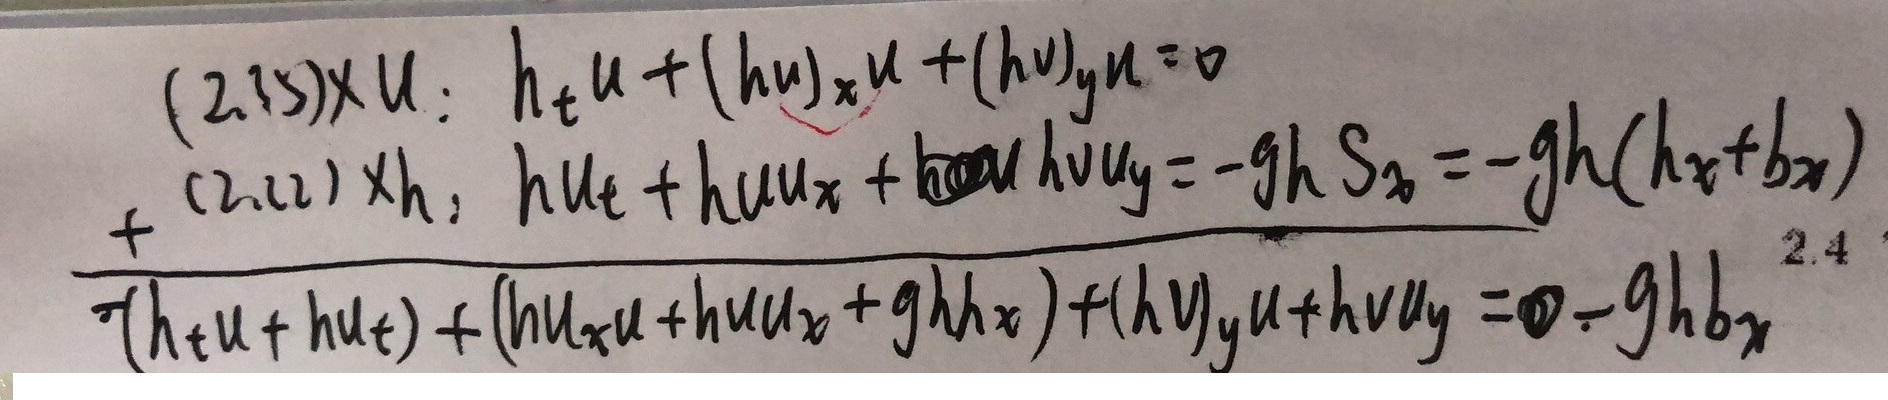 (2.35)×u: hₜu + (hu)ₓu + (hv)ᵧu = 0
(2.22)×h, huₜ + huuₓ + hvuᵧ = -ghSₓ = -gh(hₓ+bₓ)
+
2.4
(hₜu + huₜ) + (huₓu + huuₓ + ghhₓ) + (hv)ᵧu + hvuᵧ = 0 - ghbₓ